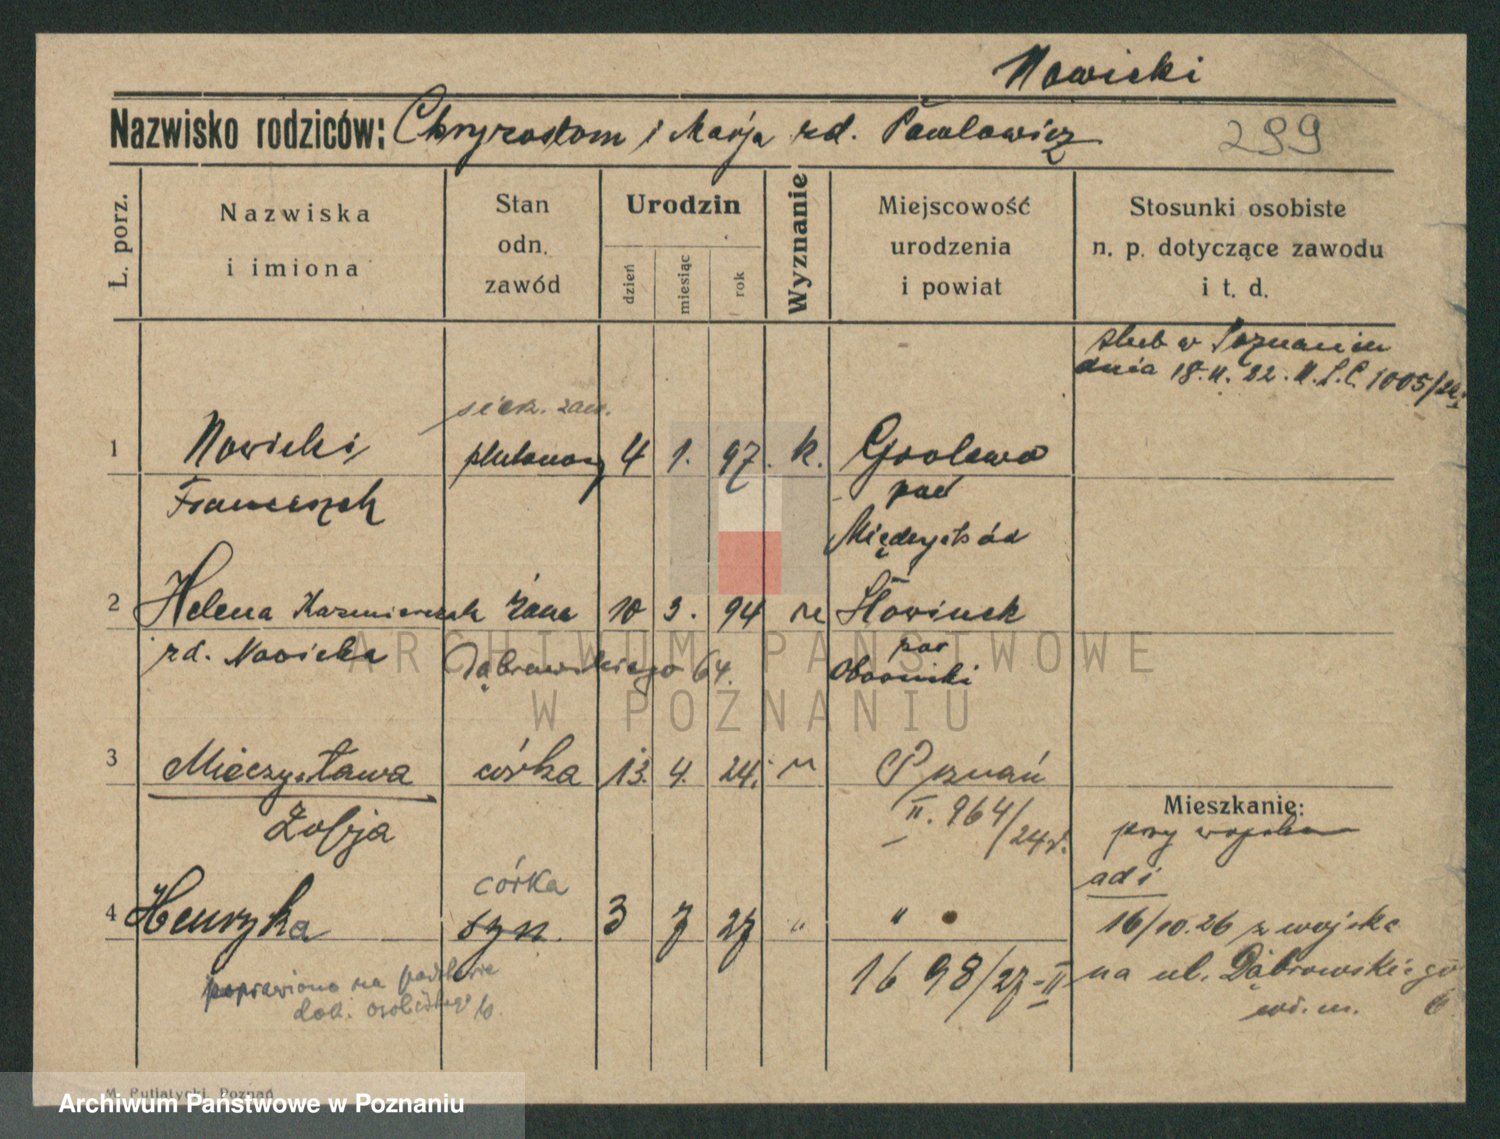 Nowicki
Nazwisko rodziców: Chryzostom i Marja rd. Pawłowicz
299
L. porz.
Nazwiska
i imiona
Stan
odn.
zawód
Urodzin
dzień
miesiąc
rok
Wyznanie
Miejscowość
urodzenia
i powiat
Stosunki osobiste
n. p. dotyczące zawodu
i t. d.
ślub w Poznaniu
dnia 18. II. 22. U.S.C. 1005/22.
1 Nowicki plutonowy 4 1. 97. k.
Franciszek pow
2 Helena Kazmierczak żona 10 3. 94
rd. Nowicka Dąbrowskiego 64. pow
Obornicki
3 Mieczysława córka 13. 4. 24. " Poznań
Zofja II. 964/24r.
Mieszkanie:
przy wojsku
córka
4 Henryka syn. 3 7 27 " "
16/10.26 z wojska
1698/27-II na ul. Dąbrowskiego
poprawiono na podstawie
dow. osobistego
M. Putiatycki, Poznań
ARCHIWUM PAŃSTWOWE
W POZNANIU
Archiwum Państwowe w Poznaniu